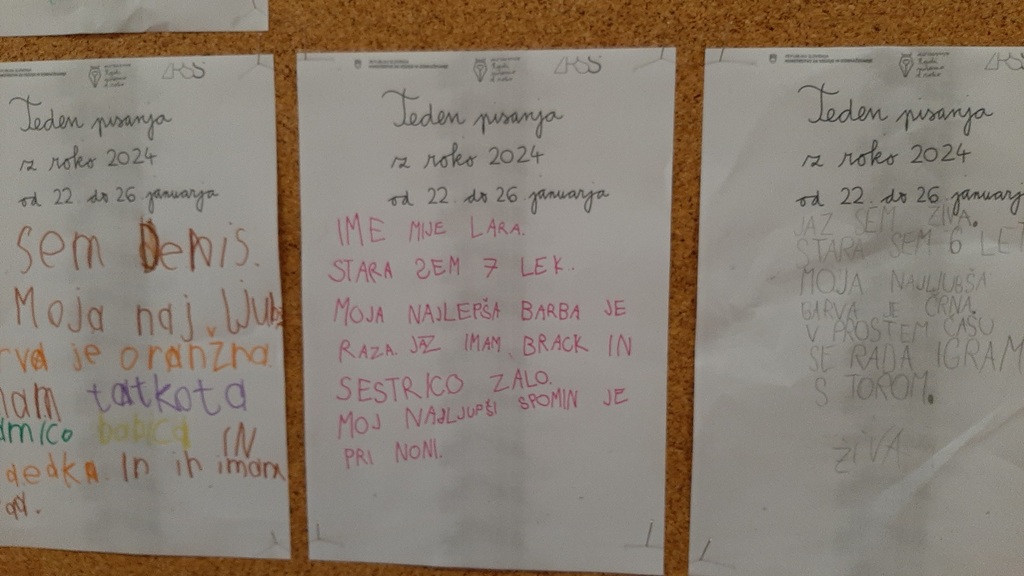 Teden pisanja
z roko 2024
od 22. do 26. januarja
sem Denis.
Moja naj
je oranžna
tatkota
babica IN
dedka. In ih imam
ZRSŠ
Teden pisanja
z roko 2024
od 22. do 26. januarja
IME MIJE LARA.
STARA SEM 7 LEK.
MOJA NAJLEPŠA BARBA JE
RAZA. JAZ IMAM BRACK IN
SESTRICO ZALO.
MOJ NAJLJUPŠI SPOMIN JE
PRI NONI.
Teden pisanja
z roko 2024
od 22. do 26. januarja
JAZ SEM ŽIVA.
STARA SEM 6 LET
MOJA NAJLJUBŠA
BARVA JE ČRNA.
V PROSTEM ČASU
SE RADA IGRAM
S TOROM.
ŽIVA